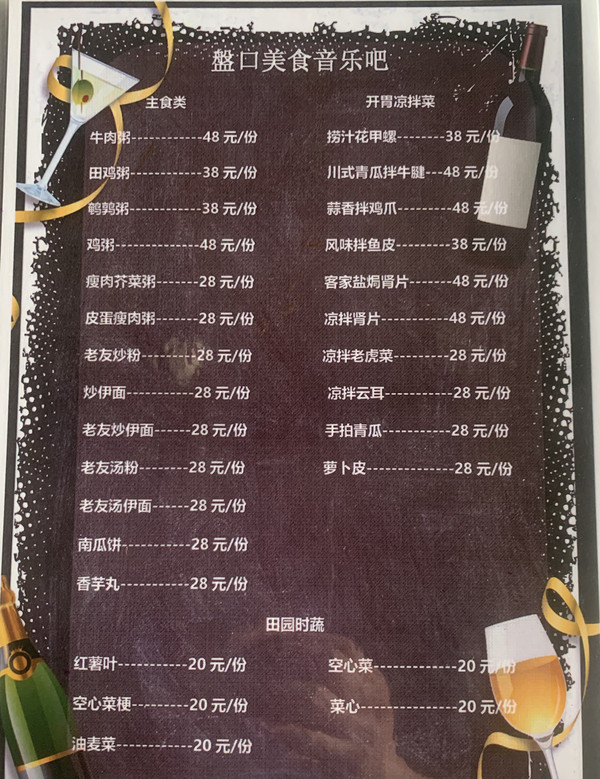 盤口美食音乐吧
主食类
牛肉粥------------48 元/份
田鸡粥------------38 元/份
鹌鹑粥------------38 元/份
鸡粥--------------48 元/份
瘦肉芥菜粥-------28 元/份
皮蛋瘦肉粥-------28 元/份
老友炒粉---------28 元/份
炒伊面-----------28 元/份
老友炒伊面------28 元/份
老友汤粉---------28 元/份
老友汤伊面------28 元/份
南瓜饼-----------28 元/份
香芋丸-----------28 元/份
开胃凉拌菜
捞汁花甲螺--------38 元/份
川式青瓜拌牛腱---48 元/份
蒜香拌鸡爪--------48 元/份
风味拌鱼皮--------38 元/份
客家盐焗肾片------48 元/份
凉拌肾片----------48 元/份
凉拌老虎菜--------28 元/份
凉拌云耳----------28 元/份
手拍青瓜----------28 元/份
萝卜皮-------------28 元/份
田园时蔬
红薯叶-----------20 元/份
空心菜梗---------20 元/份
油麦菜-----------20 元/份
空心菜------------20 元/份
菜心--------------20 元/份